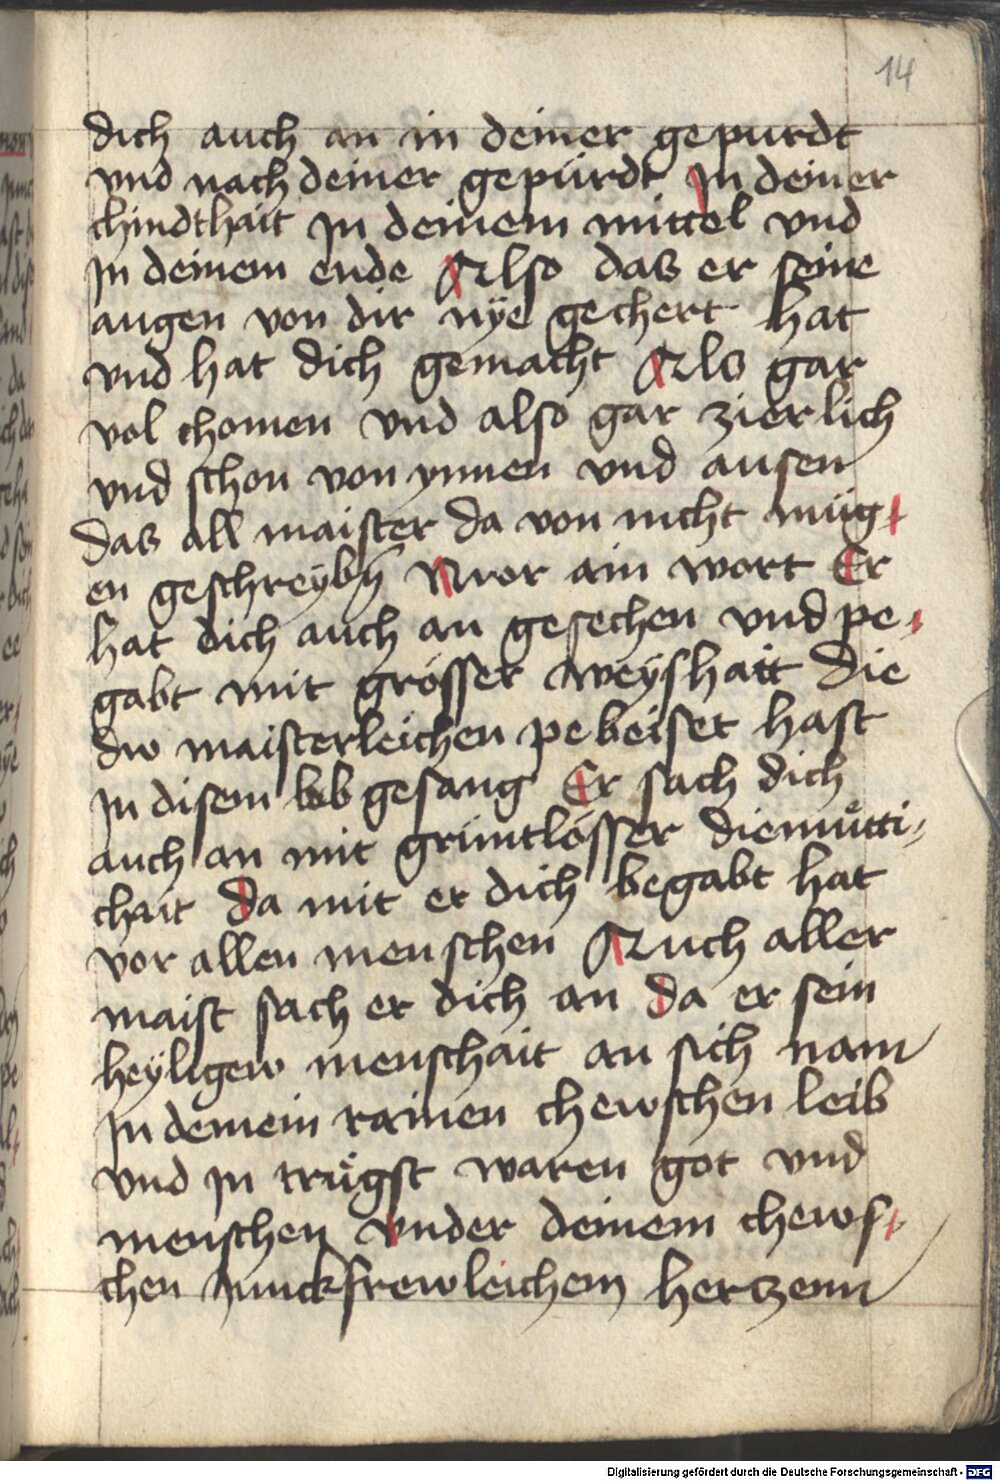 14
dich auch an in deiner gepurdt
vnd nach deiner gepürdt Jn deiner
chindthait Jn deinem mittel vnd
Jn deinem ende Also das er seine
augen von dir nÿe gechert hat
vnd hat dich gemacht Als gar
vol chomen vnd also gar zierlich
vnd schon von ynnen vnd ausen
das all maister da von nicht müg
en geschreybñ Nvor ain wort Er
hat dich auch an gesechen vnd pe
gabt mit grösser weÿshait Die
dw maisterleichen pebeiset hast
Jn disem lob gesang Er sach dich
auch an mit gruntlösser diemütti
chait da mit er dich begabt hat
vor allen menschen Auch aller
maist sach er dich an da er sein
heÿligew menschait an sich nam
Jn deinem rainen chewschen leib
vnd Jn trügst waren got vnd
menschen vnder deinem chews
chen Junckfrewleichem hertzenn
Digitalisierung gefördert durch die Deutsche Forschungsgemeinschaft - DFG